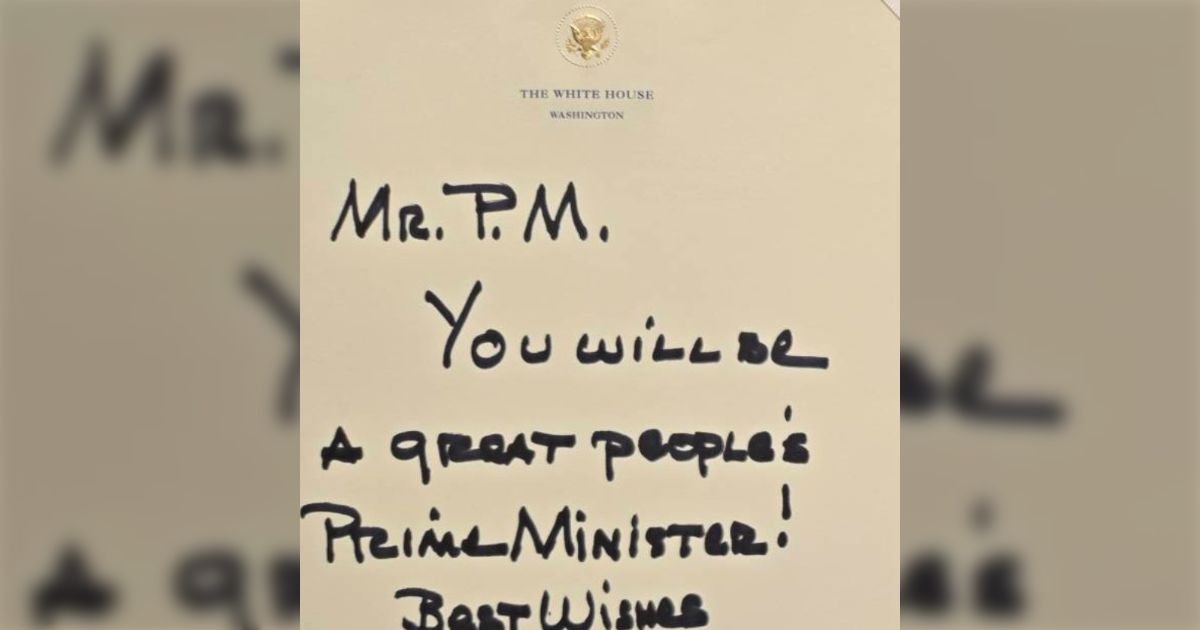 THE WHITE HOUSE
WASHINGTON
MR. P.M.
YOU WILL BE
A GREAT PEOPLE'S
PRIME MINISTER!
BEST WISHES